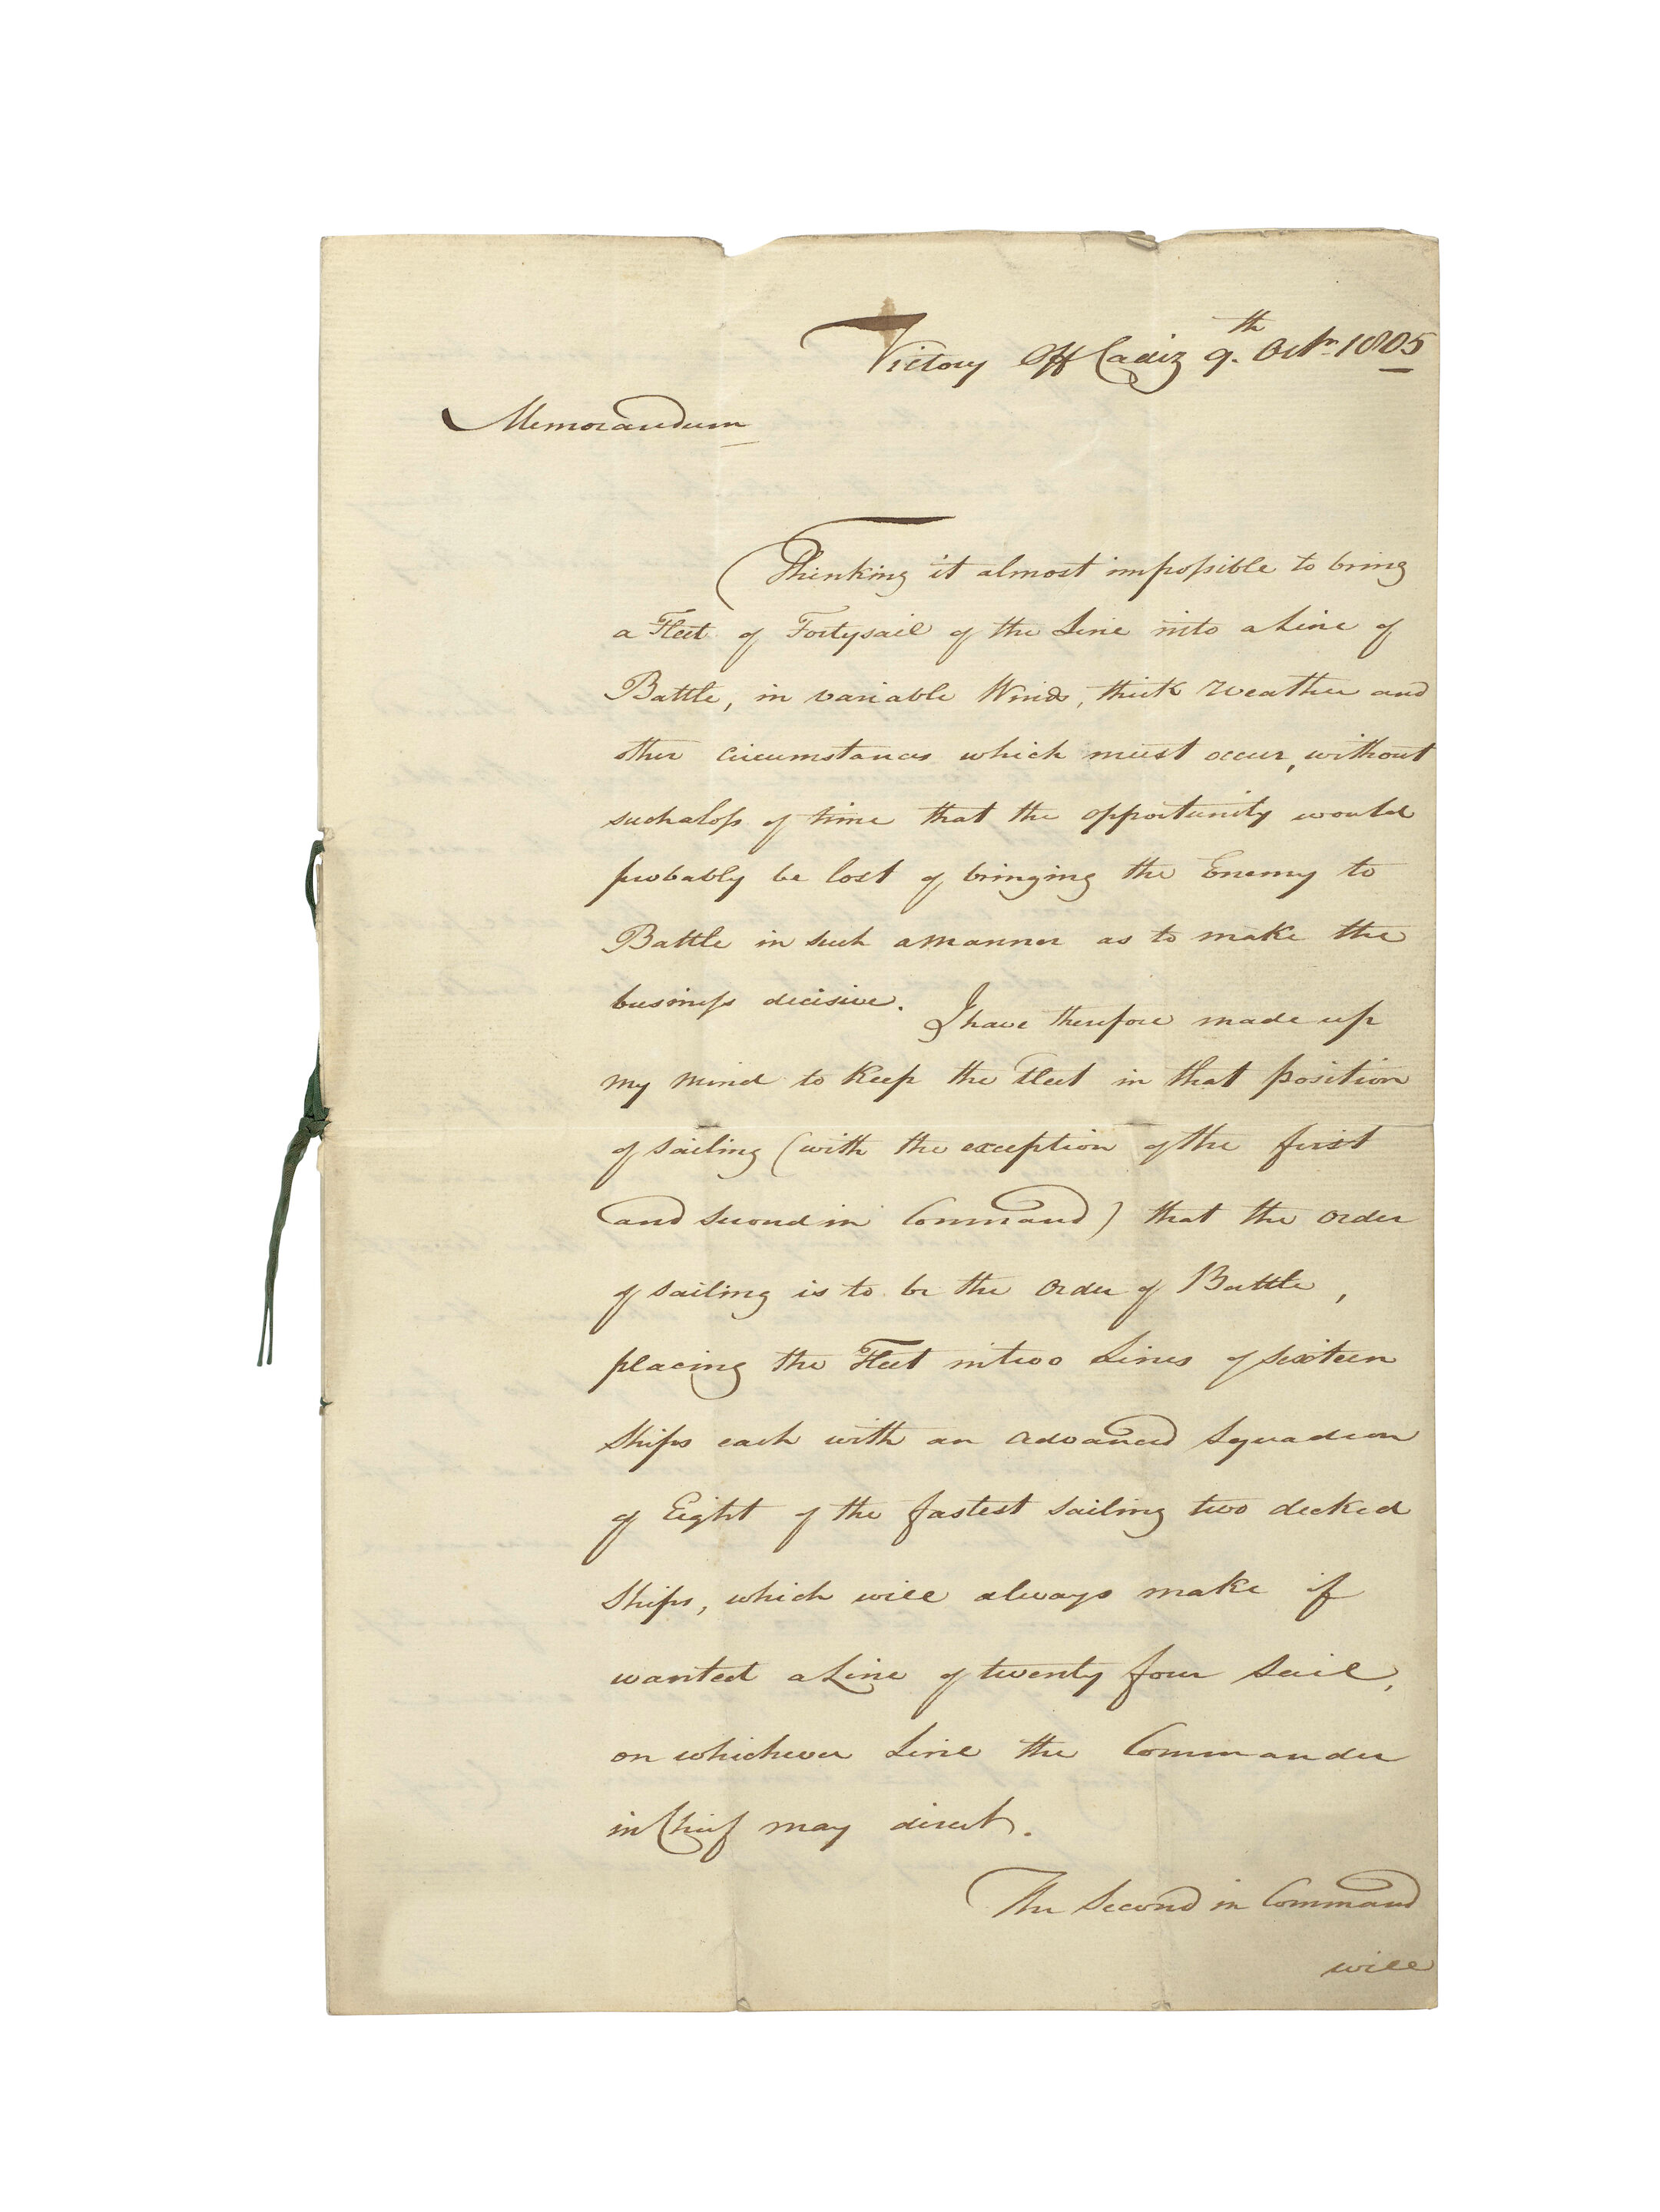 Victory Off Cadiz 9th. Octr. 1805
Memorandum
Thinking it almost impossible to bring
a Fleet of Forty sail of the Line into a Line of
Battle, in variable Winds, thick Weather and
other circumstances which must occur, without
such a loss of time that the opportunity would
probably be lost of bringing the Enemy to
Battle in such a manner as to make the
business decisive. I have therefore made up
my mind to keep the Fleet in that position
of sailing (with the exception of the first
and second in Command) that the order
of sailing is to be the Order of Battle,
placing the Fleet in two Lines of sixteen
Ships each with an advanced squadron
of Eight of the fastest sailing two decked
Ships, which will always make if
wanted a Line of twenty four Sail,
on whichever Line the Commander
in Chief may direct.
The Second in Command
will